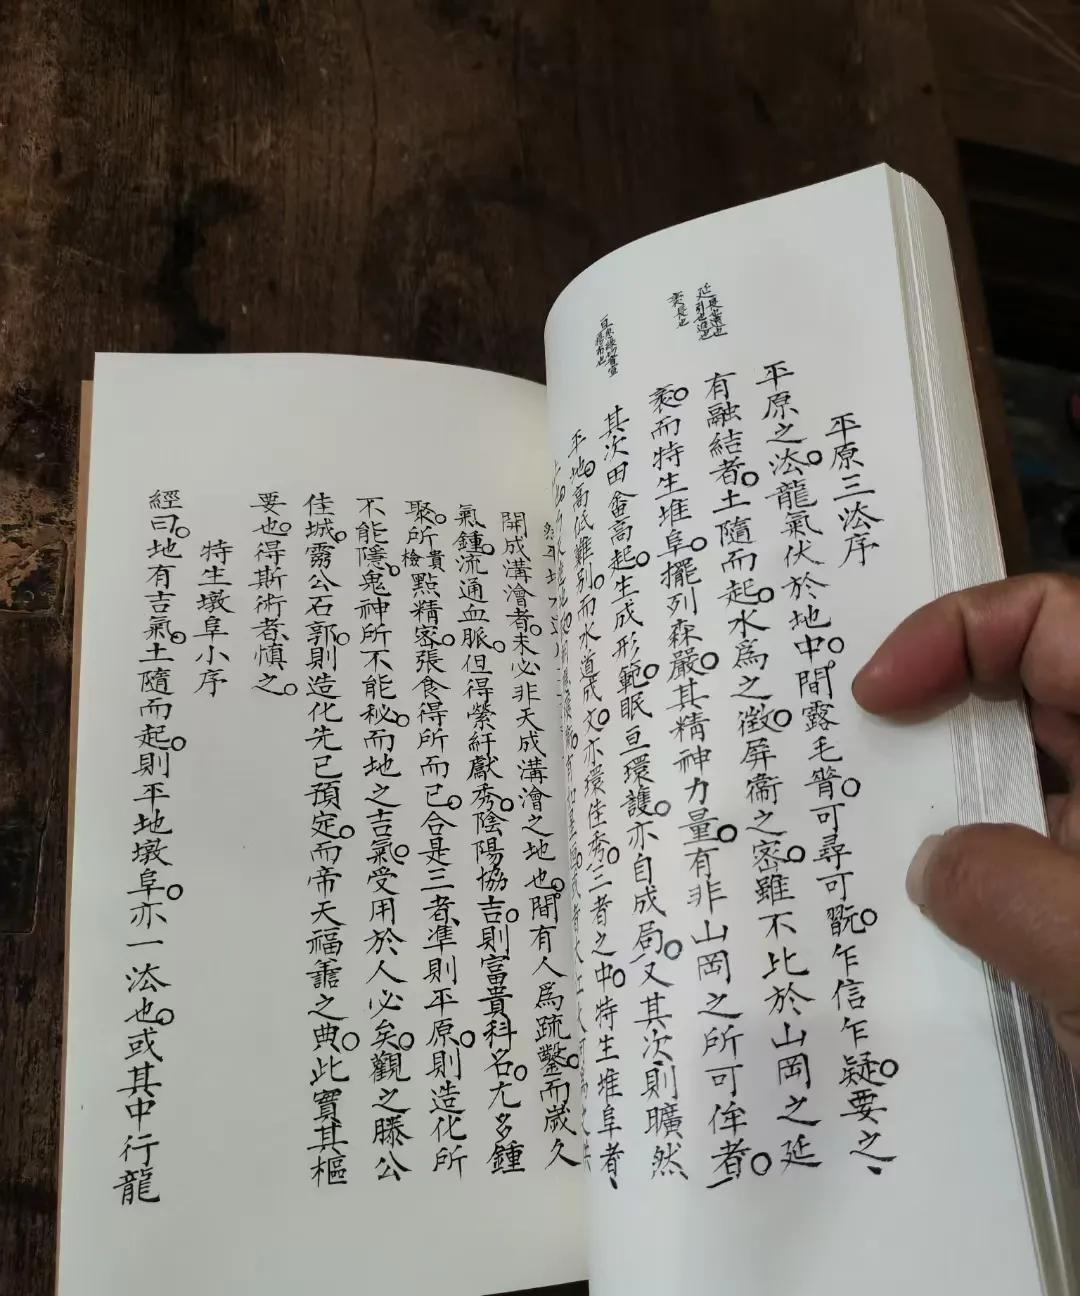 平原三法序
平原之法。龍氣伏於地中。間露毛脊。可尋可翫。乍信乍疑。要之、
有融結者。土隨而起。水爲之徵。屏衞之密。雖不比於山岡之延
袤。而特生堆阜。擺列森嚴。其精神力量。有非山岡之所可侔者。
其次田畬高起。生成形範。眠亘環護。亦自成局。又其次、則曠然
平地。高低難别。而水道成文。亦環佳秀。三者之中。特生堆阜者、
延
袤長也
開成溝澮者。未必非天成溝澮之地也。間有人爲疏鑿。而歲久
氣鍾。流通血脈。但得縈紆獻秀。陰陽協吉。則富貴科名。尤多鍾
聚。所貴檢點精密。張食得所而已。合是三者、準則平原。則造化所
不能隱。鬼神所不能秘。而地之吉氣。受用於人必矣。觀之滕公
佳城。霧公石郭。則造化先已預定。而帝天福善之典。此實其樞
要也。得斯術者、慎之。
特生墩阜小序
經曰。地有吉氣。土隨而起。則平地墩阜。亦一法也。或其中行龍